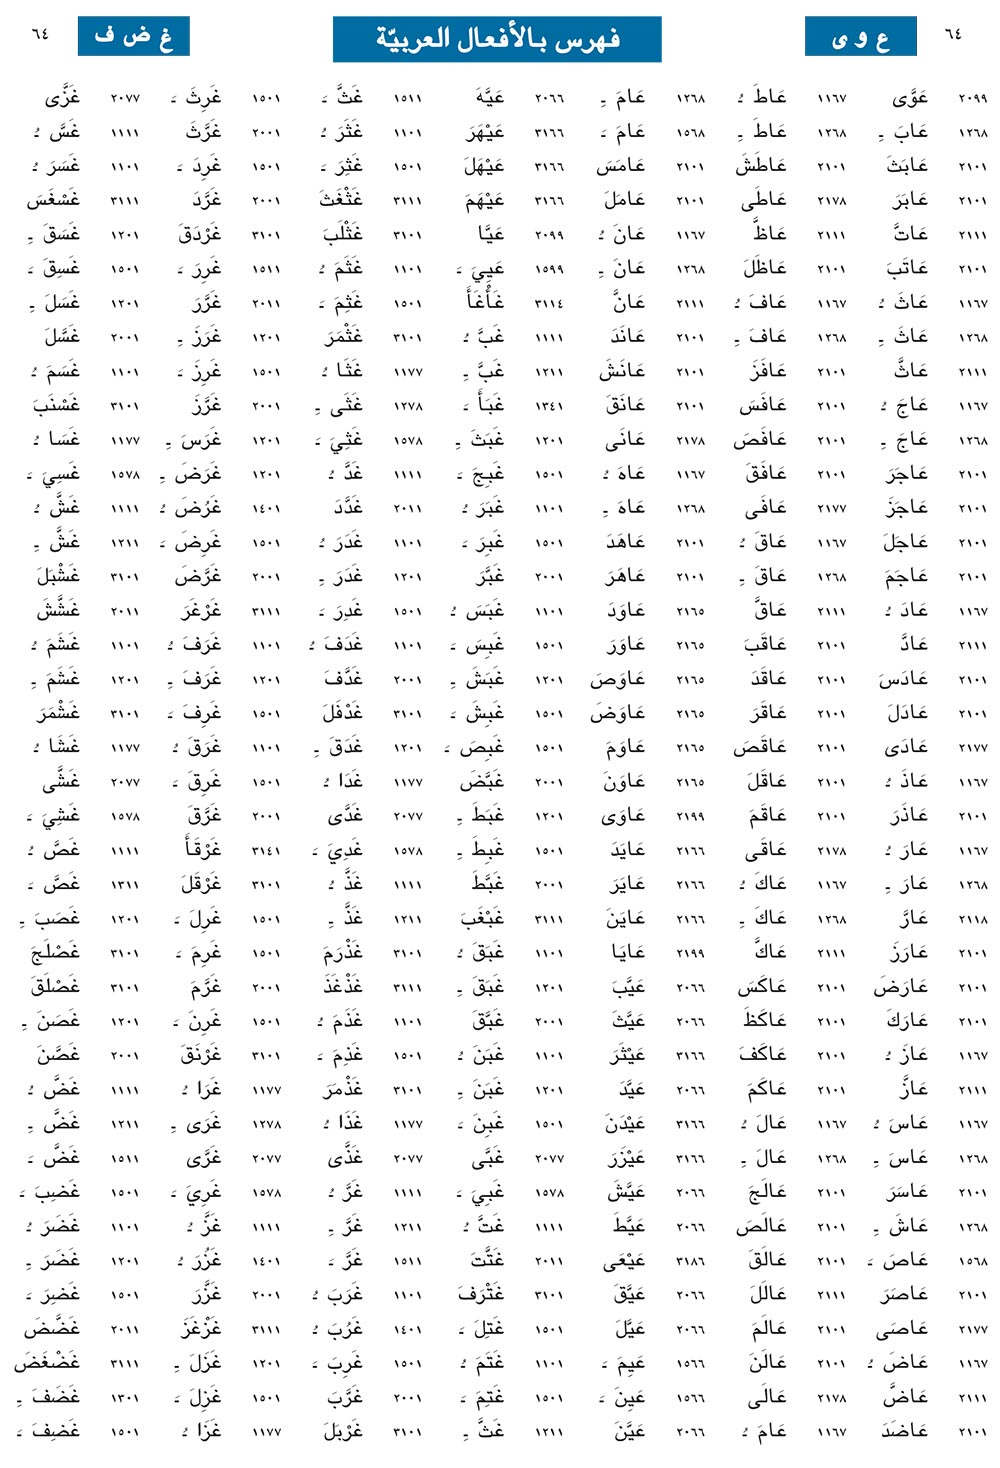 ٦٤ ع و ى فهرس بالأفعال العربيّة غ ض ف ٦٤
٢٠٩٩ عَوَّى ١١٦٧ عَاطَ ـُ ١٢٦٨ عَامَ ـِ ٢٠٦٦ عَيَّهَ ١٥١١ غَثَّ ـَ ١٥٠١ غَرِثَ ـَ ٢٠٧٧ غَزَّى
١٢٦٨ عَابَ ـِ ١٢٦٨ عَاطَ ـِ ١٥٦٨ عَامَ ـَ ٣١٦٦ عَيْهَرَ ١١٠١ غَثَرَ ـُ ٢٠٠١ غَرَّثَ ١١١١ غَسَّ ـُ
٢١٠١ عَابَثَ ٢١٠١ عَاطَشَ ٢١٠١ عَامَسَ ٣١٦٦ عَيْهَلَ ١٥٠١ غَثِرَ ـَ ١٥٠١ غَرِدَ ـَ ١١٠١ غَسَرَ ـُ
٢١٠١ عَابَرَ ٢١٧٨ عَاطَى ٢١٠١ عَامَلَ ٣١٦٦ عَيْهَمَ ٣١١١ غَثْغَثَ ٢٠٠١ غَرَّدَ ٣١١١ غَسْغَسَ
٢١١١ عَاتَّ ٢١١١ عَاظَّ ١١٦٧ عَانَ ـُ ٢٠٩٩ عَيَّا ٣١٠١ غَثْلَبَ ٣١٠١ غَرْدَقَ ١٢٠١ غَسَقَ ـِ
٢١٠١ عَاتَبَ ٢١٠١ عَاظَلَ ١٢٦٨ عَانَ ـِ ١٥٩٩ عَيِيَ ـَ ١١٠١ غَثَمَ ـُ ١٥١١ غَرِرَ ـَ ١٥٠١ غَسِقَ ـَ
١١٦٧ عَاثَ ـُ ١١٦٧ عَافَ ـُ ٢١١١ عَانَّ ٣١١٤ غَأْغَأَ ١٥٠١ غَثِمَ ـَ ٢٠١١ غَرَّرَ ١٢٠١ غَسَلَ ـِ
١٢٦٨ عَاثَ ـِ ١٢٦٨ عَافَ ـِ ٢١٠١ عَانَدَ ١١١١ غَبَّ ـُ ٣١٠١ غَثْمَرَ ١٢٠١ غَرَزَ ـِ ٢٠٠١ غَسَّلَ
٢١١١ عَاثَّ ٢١٠١ عَافَزَ ٢١٠١ عَانَشَ ١٢١١ غَبَّ ـِ ١١٧٧ غَثَا ـُ ١٥٠١ غَرِزَ ـَ ١١٠١ غَسَمَ ـُ
١١٦٧ عَاجَ ـُ ٢١٠١ عَافَسَ ٢١٠١ عَانَقَ ١٣٤١ غَبَأَ ـَ ١٢٧٨ غَثَى ـِ ٢٠٠١ غَرَّزَ ٣١٠١ غَسْنَبَ
١٢٦٨ عَاجَ ـِ ٢١٠١ عَافَصَ ٢١٧٨ عَانَى ١٢٠١ غَبَثَ ـِ ١٥٧٨ غَثِيَ ـَ ١٢٠١ غَرَسَ ـِ ١١٧٧ غَسَا ـُ
٢١٠١ عَاجَرَ ٢١٠١ عَافَقَ ١١٦٧ عَاهَ ـُ ١٥٠١ غَبِجَ ـَ ١١١١ غَدَّ ـُ ١٢٠١ غَرَضَ ـِ ١٥٧٨ غَسِيَ ـَ
٢١٠١ عَاجَزَ ٢١٧٧ عَافَى ١٢٦٨ عَاهَ ـِ ١١٠١ غَبَرَ ـُ ٢٠١١ غَدَّدَ ١٤٠١ غَرُضَ ـُ ١١١١ غَشَّ ـُ
٢١٠١ عَاجَلَ ١١٦٧ عَاقَ ـُ ٢١٠١ عَاهَدَ ١٥٠١ غَبِرَ ـَ ١١٠١ غَدَرَ ـُ ١٥٠١ غَرِضَ ـَ ١٢١١ غَشَّ ـِ
٢١٠١ عَاجَمَ ١٢٦٨ عَاقَ ـِ ٢١٠١ عَاهَرَ ٢٠٠١ غَبَّرَ ١٢٠١ غَدَرَ ـِ ٢٠٠١ غَرَّضَ ٣١٠١ غَشْبَلَ
١١٦٧ عَادَ ـُ ٢١١١ عَاقَّ ٢١٦٥ عَاوَدَ ١١٠١ غَبَسَ ـُ ١٥٠١ غَدِرَ ـَ ٣١١١ غَرْغَرَ ٢٠١١ غَشَّشَ
٢١١١ عَادَّ ٢١٠١ عَاقَبَ ٢١٦٥ عَاوَرَ ١٥٠١ غَبِسَ ـَ ١١٠١ غَدَفَ ـُ ١١٠١ غَرَفَ ـُ ١١٠١ غَشَمَ ـُ
٢١٠١ عَادَسَ ٢١٠١ عَاقَدَ ٢١٦٥ عَاوَصَ ١٢٠١ غَبَشَ ـِ ٢٠٠١ غَدَّفَ ١٢٠١ غَرَفَ ـِ ١٢٠١ غَشَمَ ـِ
٢١٠١ عَادَلَ ٢١٠١ عَاقَرَ ٢١٦٥ عَاوَضَ ١٥٠١ غَبِشَ ـَ ٣١٠١ غَدْفَلَ ١٥٠١ غَرِفَ ـَ ٣١٠١ غَشْمَرَ
٢١٧٧ عَادَى ٢١٠١ عَاقَصَ ٢١٦٥ عَاوَمَ ١٥٠١ غَبِصَ ـَ ١٢٠١ غَدَقَ ـِ ١١٠١ غَرَقَ ـُ ١١٧٧ غَشَا ـُ
١١٦٧ عَاذَ ـُ ٢١٠١ عَاقَلَ ٢١٦٥ عَاوَنَ ٢٠٠١ غَبَّضَ ١١٧٧ غَدَا ـُ ١٥٠١ غَرِقَ ـَ ٢٠٧٧ غَشَّى
٢١٠١ عَاذَرَ ٢١٠١ عَاقَمَ ٢١٩٩ عَاوَى ١٢٠١ غَبَطَ ـِ ٢٠٧٧ غَدَّى ٢٠٠١ غَرَّقَ ١٥٧٨ غَشِيَ ـَ
١١٦٧ عَارَ ـُ ٢١٧٨ عَاقَى ٢١٦٦ عَايَدَ ١٥٠١ غَبِطَ ـِ ١٥٧٨ غَدِيَ ـَ ٣١٤١ غَرْقَأَ ١١١١ غَصَّ ـُ
١٢٦٨ عَارَ ـِ ١١٦٧ عَاكَ ـُ ٢١٦٦ عَايَرَ ٢٠٠١ غَبَّطَ ١١١١ غَذَّ ـُ ٣١٠١ غَرْقَلَ ١٣١١ غَصَّ ـَ
٢١١٨ عَارَّ ١٢٦٨ عَاكَ ـِ ٢١٦٦ عَايَنَ ٣١١١ غَبْغَبَ ١٢١١ غَذَّ ـِ ١٥٠١ غَرِلَ ـَ ١٢٠١ غَصَبَ ـِ
٢١٠١ عَارَزَ ٢١١١ عَاكَّ ٢١٩٩ عَايَا ١١٠١ غَبَقَ ـُ ٣١٠١ غَذْرَمَ ١٥٠١ غَرِمَ ـَ ٣١٠١ غَصْلَجَ
٢١٠١ عَارَضَ ٢١٠١ عَاكَسَ ٢٠٦٦ عَيَّبَ ١٢٠١ غَبَقَ ـِ ٣١١١ غَذْغَذَ ٢٠٠١ غَرَّمَ ٣١٠١ غَصْلَقَ
٢١٠١ عَارَكَ ٢١٠١ عَاكَظَ ٢٠٦٦ عَيَّثَ ٢٠٠١ غَبَّقَ ١١٠١ غَذَمَ ـُ ١٥٠١ غَرِنَ ـَ ١٢٠١ غَصَنَ ـِ
١١٦٧ عَازَ ـُ ٢١٠١ عَاكَفَ ٣١٦٦ عَيْثَرَ ١١٠١ غَبَنَ ـُ ١٥٠١ غَذِمَ ـَ ٣١٠١ غَرْنَقَ ٢٠٠١ غَصَّنَ
٢١١١ عَازَّ ٢١٠١ عَاكَمَ ٢٠٦٦ عَيَّدَ ١٢٠١ غَبَنَ ـِ ٣١٠١ غَذْمَرَ ١١٧٧ غَرَا ـُ ١١١١ غَضَّ ـُ
١١٦٧ عَاسَ ـُ ١١٦٧ عَالَ ـُ ٣١٦٦ عَيْدَنَ ١٥٠١ غَبِنَ ـَ ١١٧٧ غَذَا ـُ ١٢٧٨ غَرَى ـِ ١٢١١ غَضَّ ـِ
١٢٦٨ عَاسَ ـِ ١٢٦٨ عَالَ ـِ ٣١٦٦ عَيْزَرَ ٢٠٧٧ غَبَّى ٢٠٧٧ غَذَّى ٢٠٧٧ غَرَّى ١٥١١ غَضَّ ـَ
٢١٠١ عَاسَرَ ٢١٠١ عَالَجَ ٢٠٦٦ عَيَّشَ ١٥٧٨ غَبِيَ ـَ ١١١١ غَرَّ ـُ ١٥٧٨ غَرِيَ ـَ ١٥٠١ غَضِبَ ـَ
١٢٦٨ عَاشَ ـِ ٢١٠١ عَالَصَ ٢٠٦٦ عَيَّطَ ١١١١ غَتَّ ـُ ١٢١١ غَرَّ ـِ ١١١١ غَزَّ ـُ ١١٠١ غَضَرَ ـُ
١٥٦٨ عَاصَ ـَ ٢١٠١ عَالَقَ ٣١٨٦ عَيْعَى ٢٠١١ غَتَّتَ ١٥١١ غَرَّ ـَ ١٤٠١ غَزُرَ ـُ ١٢٠١ غَضَرَ ـِ
٢١٠١ عَاصَرَ ٢١١١ عَالَلَ ٢٠٦٦ عَيَّقَ ٣١٠١ غَتْرَفَ ١١٠١ غَرَبَ ـُ ٢٠٠١ غَزَّرَ ١٥٠١ غَضِرَ ـَ
٢١٧٧ عَاصَى ٢١٠١ عَالَمَ ٢٠٦٦ عَيَّلَ ١٥٠١ غَتِلَ ـَ ١٤٠١ غَرُبَ ـُ ٣١١١ غَزْغَزَ ٢٠١١ غَضَّضَ
١١٦٧ عَاضَ ـُ ٢١٠١ عَالَنَ ١٥٦٦ عَيِمَ ـَ ١١٠١ غَتَمَ ـُ ١٥٠١ غَرِبَ ـَ ١٢٠١ غَزَلَ ـِ ٣١١١ غَضْغَضَ
٢١١١ عَاضَّ ٢١٧٨ عَالَى ١٥٦٦ عَيِنَ ـَ ١٥٠١ غَتِمَ ـَ ٢٠٠١ غَرَّبَ ١٥٠١ غَزِلَ ـَ ١٣٠١ غَضَفَ ـِ
٢١٠١ عَاضَدَ ١١٦٧ عَامَ ـُ ٢٠٦٦ عَيَّنَ ١٢١١ غَثَّ ـِ ٣١٠١ غَرْبَلَ ١١٧٧ غَزَا ـُ ١٥٠١ غَضِفَ ـَ